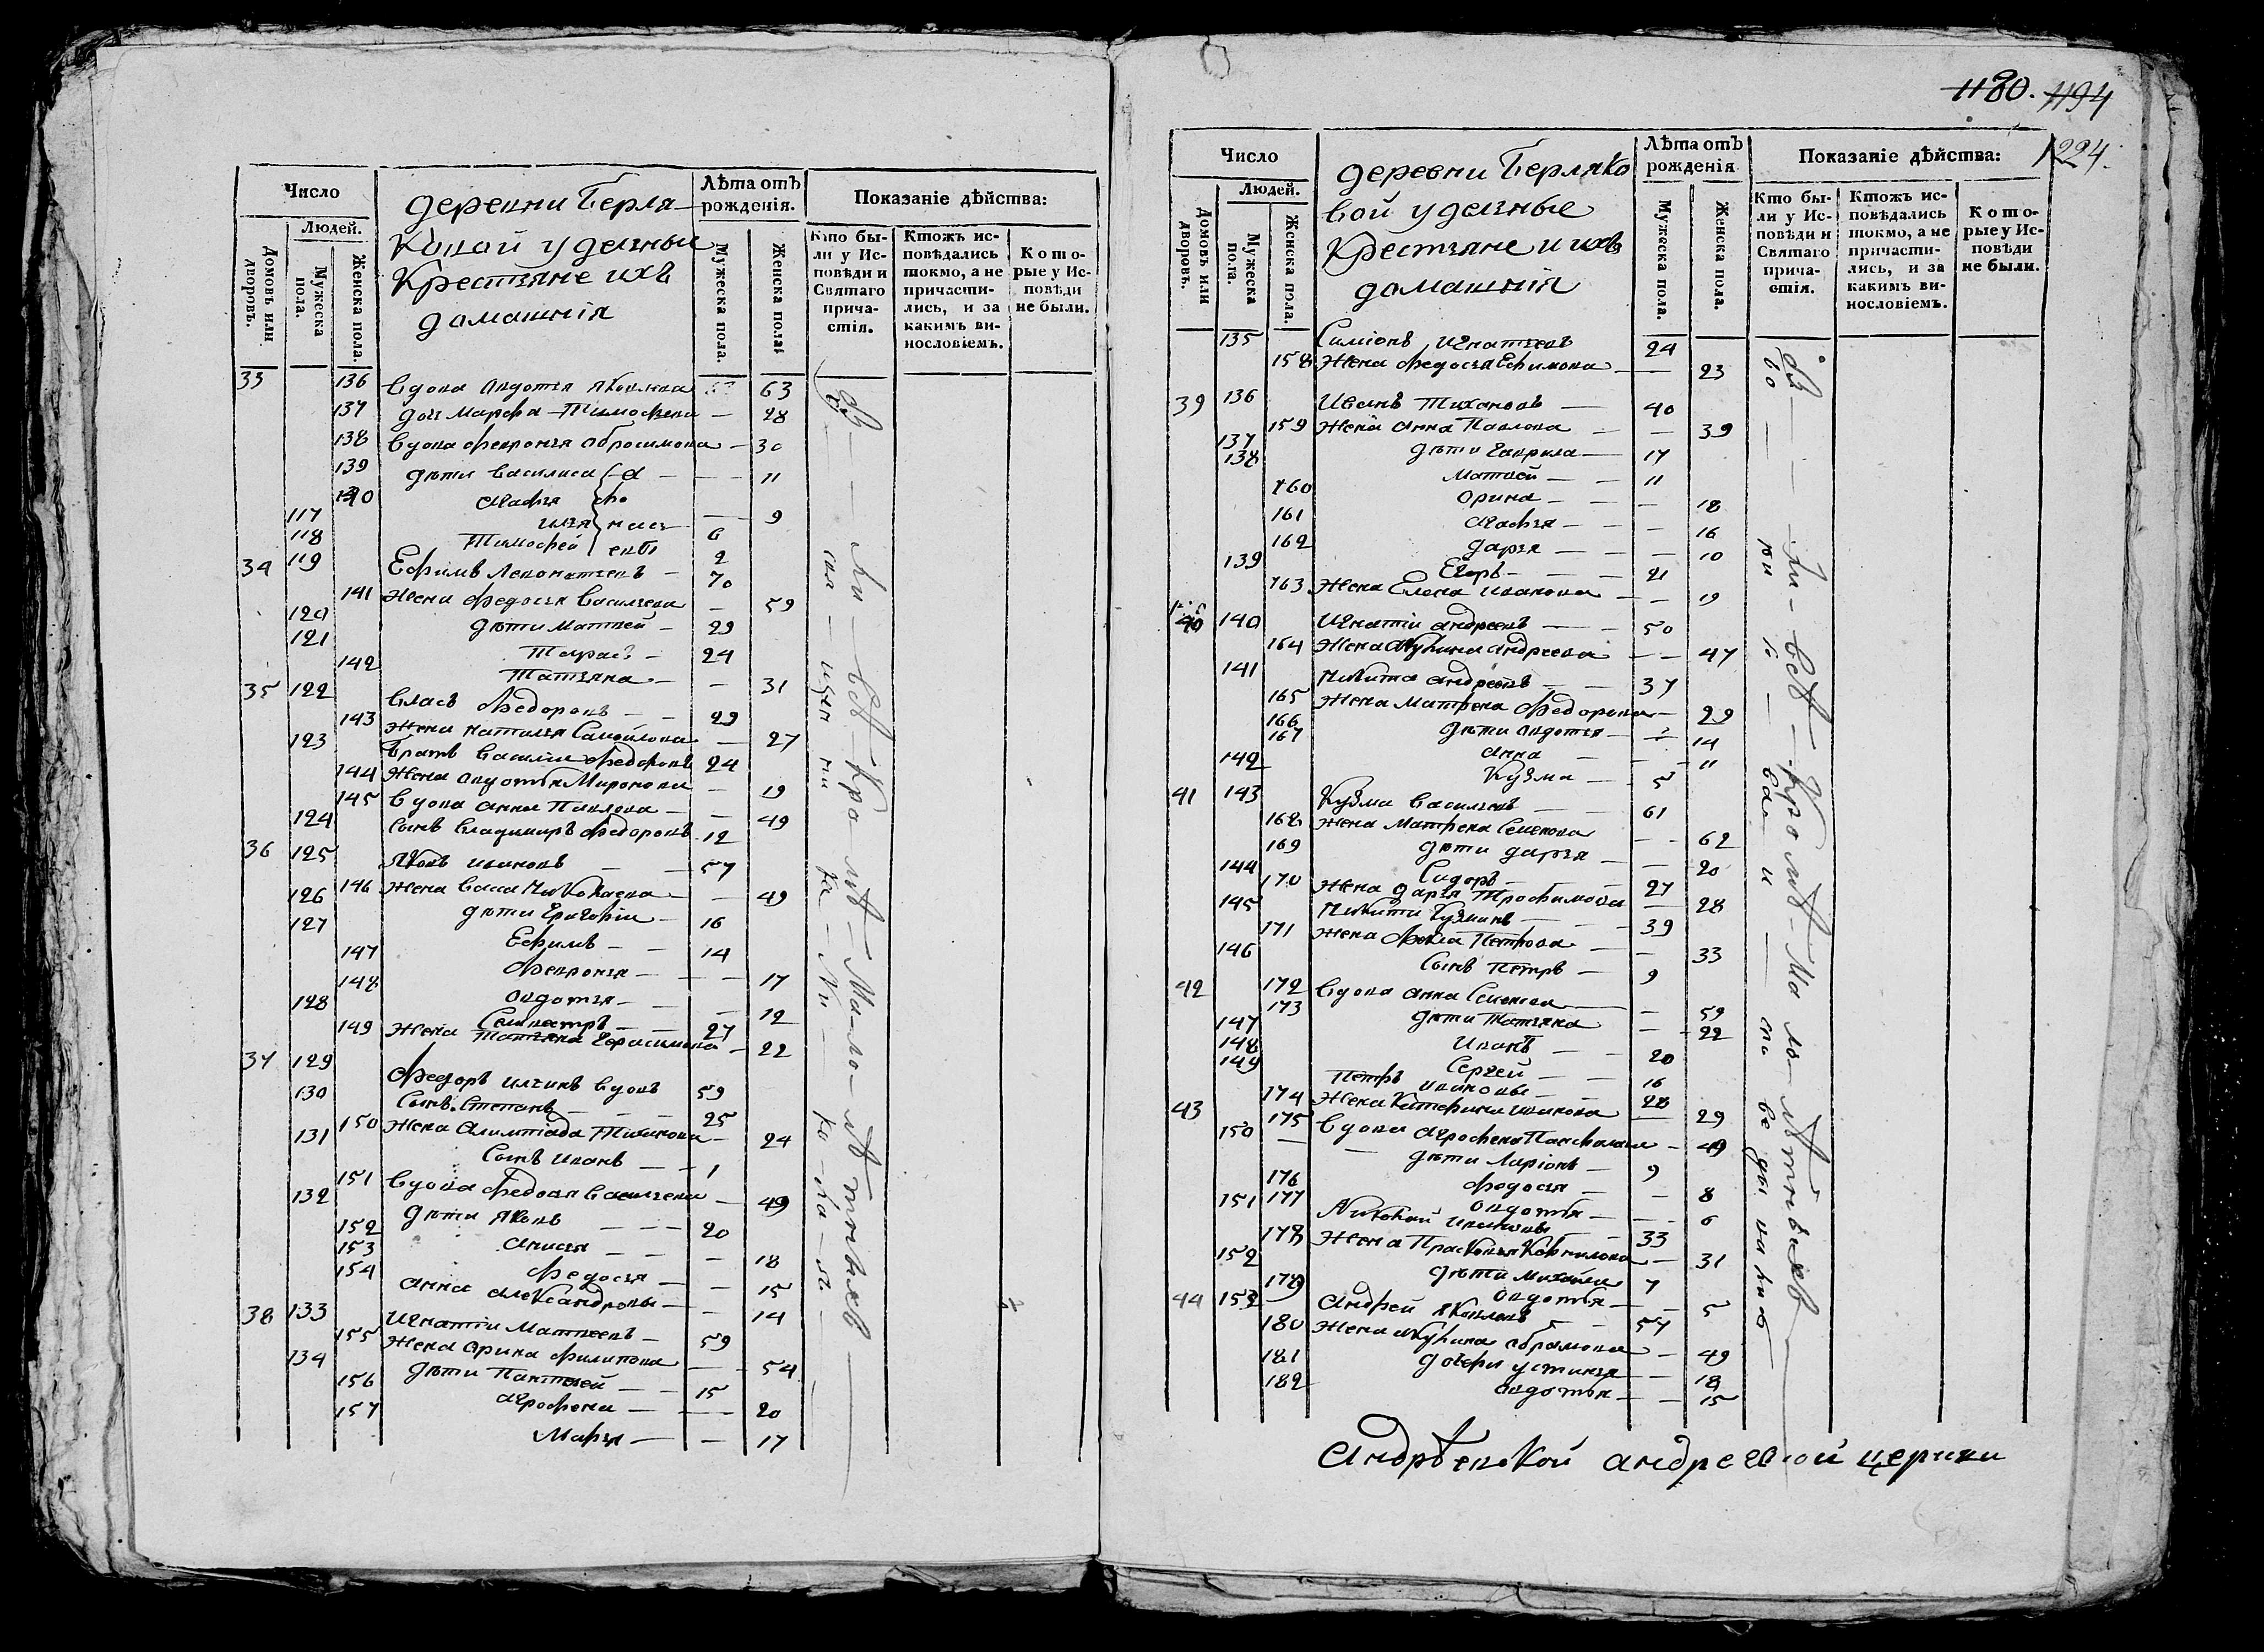 Число
Людей.
Домовъ или дворовъ.
Мужеска пола.
Женска пола.
деревни Берля-
ковой удельныи
Крестьяне ихъ
домашнiя
Лѣта отъ
рожденiя.
Мужеска пола.
Женска пола.
Показанiе дѣйства:
Кто бы-
ли у Ис-
повѣди и
Святаго
прича-
стiя.
Ктожъ ис-
повѣдались
токмо, а не
причасти-
лись, и за
какимъ ви-
нословiемъ.
Кото-
рые у Ис-
повѣди
не были.
33 136 Вдова Авдотья Яковлева 63
137 дочь Марфа Тимофеева — 28
138 Вдова Февронья Абросимова — 30
139 дѣти Василиса — 11
140 Агафья — 9
117 Илья 6
118 Тимофей 2
34 119 Ефимъ Леонтьевъ — 70
141 Жена Федосья Васильева — 59
120 дѣти Матвей — 29
121 Тарасъ — 24
142 Татьяна — 31
35 122 Власъ Федоровъ — 29
143 Жена Наталья Самойлова — 27
123 братъ Василiи Федоровъ 24
144 Жена Авдотья Миронова — 19
145 Вдова Анна Павлова — 49
124 сынъ Владимиръ Федоровъ 12
36 125 Яковъ Ивановъ — 57
146 Жена Васа Николаева — 49
126 дѣти Григорiи — 16
127 Ефимъ — 14
147 Февронья — 17
148 Авдотья — 12
128 Селивестръ — 27
149 Жена Татьяна Герасимова — 22
37 129 Федоръ Ильинъ вдовъ 59
130 Сынъ Степанъ — 25
150 Жена Алимпiада Тиханова — 24
131 Сынъ Иванъ — 1
151 Вдова Федосья Васильева — 49
132 дѣти Яковъ — 20
152 Анисья — 18
153 Федосья — 15
154 Анна Александровы — 14
38 133 Игнатiи Матвеевъ — 59
155 Жена Орина Филипова — 54
134 дѣти Пантелей — 15
156 Агрофена — 20
157 Марья — 17
1180. 1194
1224.
Число
Людей.
Домовъ или дворовъ.
Мужеска пола.
Женска пола.
деревни Берляко
вой удельные
Крестьяне и ихъ
домашнiя
Лѣта отъ
рожденiя
Мужеска пола.
Женска пола.
Показанiе дѣйства:
Кто бы-
ли у Ис-
повѣди и
Святаго
прича-
стiя.
Ктожъ ис-
повѣдались
токмо, а не
причасти-
лись, и за
какимъ ви-
нословiемъ.
Кото-
рые у Ис-
повѣди
не были.
135 Симiонъ Игнатьевъ 24
158 Жена Федосья Ефимова — 23
39 136 Иванъ Тихановъ — 40
159 Жена Анна Павлова — 39
137 дѣти Гаврила — 17
138 Матвей — 11
160 Орина — 18
161 Агафья — 16
162 Дарья — 10
139 Егоръ — 21
163 Жена Елена Иванова — 19
40 140 Игнатiи Андреевъ — 50
164 Жена Акулина Андреева — 47
141 Никита Андреевъ — 37
165 Жена Матрена Федорова — 29
166 дѣти Авдотья — 14
167 Анна — 11
142 Кузма — 5
41 143 Кузма Васильевъ — 61
168 Жена Матрена Семенова — 62
169 дѣти Дарья — 20
144 Сидоръ — 27
170 Жена Дарья Трофимова — 28
145 Никита Кузминъ — 39
171 Жена Фекла Петрова — 33
146 Сынъ Петръ — 9
42 172 Вдова Анна Семенова — 59
173 дѣти Татьяна — 22
147 Иванъ — 20
148 Сергей — 16
149 Петръ Ивановы — 28
174 Жена Катерина Иванова — 29
43 175 Вдова Агрофена — 49
150 дѣти Ларiонъ — 9
176 Федосья — 8
177 Авдотья — 6
151 Николай Ивановъ — 33
178 Жена Прасковья Корнилова — 31
152 дѣти Михайла 7
179 Авдотья — 5
44 153 Андрей Яковлевъ — 57
180 Жена Акулина Абрамова — 49
181 дочери Устинья — 18
182 Авдотья — 15
Андрѣевской андреевской церкви